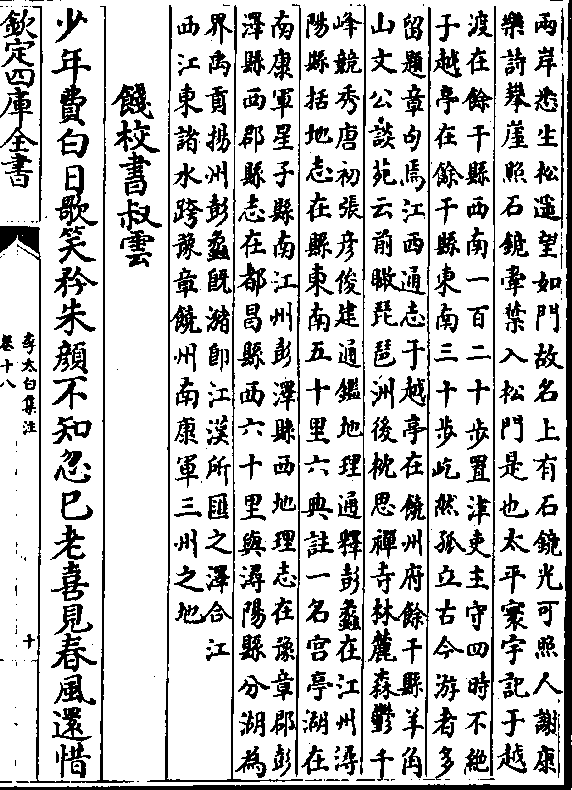 兩岸悉生松遥望如門故名上有石鏡光可照人謝康
樂詩攀崖照石鏡牽葉入松門是也太平寰宇記于越
渡在餘干縣西南一百二十步置津吏主守四時不絶
子越亭在餘干縣東南三十步屹然孤立古今游者多
留題章句焉江西通志于越亭在饒州府餘干縣羊角
山文公談苑云前瞰琵琶洲後枕思禪寺林麓森鬱千
峰競秀唐初張彦俊建通鑑地理通釋彭蠡在江州潯
陽縣括地志在縣東南五十里六典註一名宫亭湖在
南康軍星子縣南江州彭澤縣西地理志在豫章郡彭
澤縣西郡縣志在都昌縣西六十里與潯陽縣分湖為
界禹貢揚州彭蠡既豬即江漢所匯之澤合江
西江東諸水跨豫章饒州南康軍三州之地
餞校書叔雲
少年費白日歌笑矜朱顔不知忽已老喜見春風還惜
欽定四庫全書
李太白集注
卷十八
十